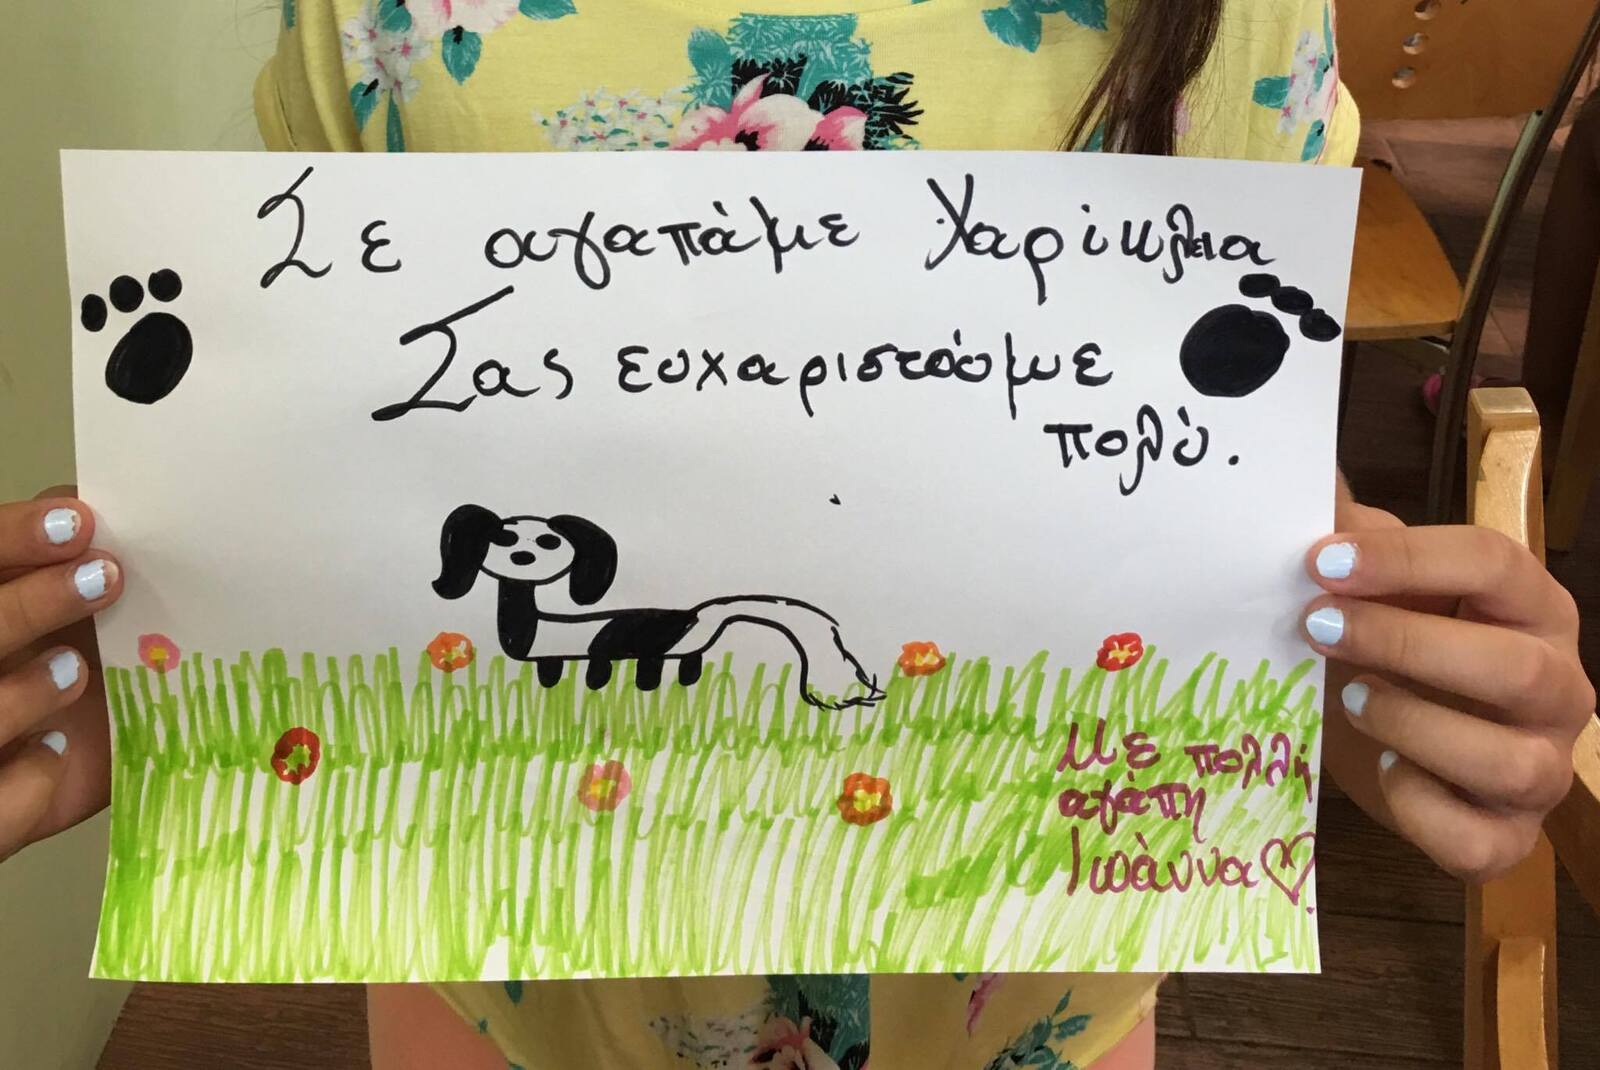 Σε αγαπάμε Χαρίκλεια
Σας ευχαριστούμε
πολύ.
Με πολλή
αγάπη
Ιωάννα